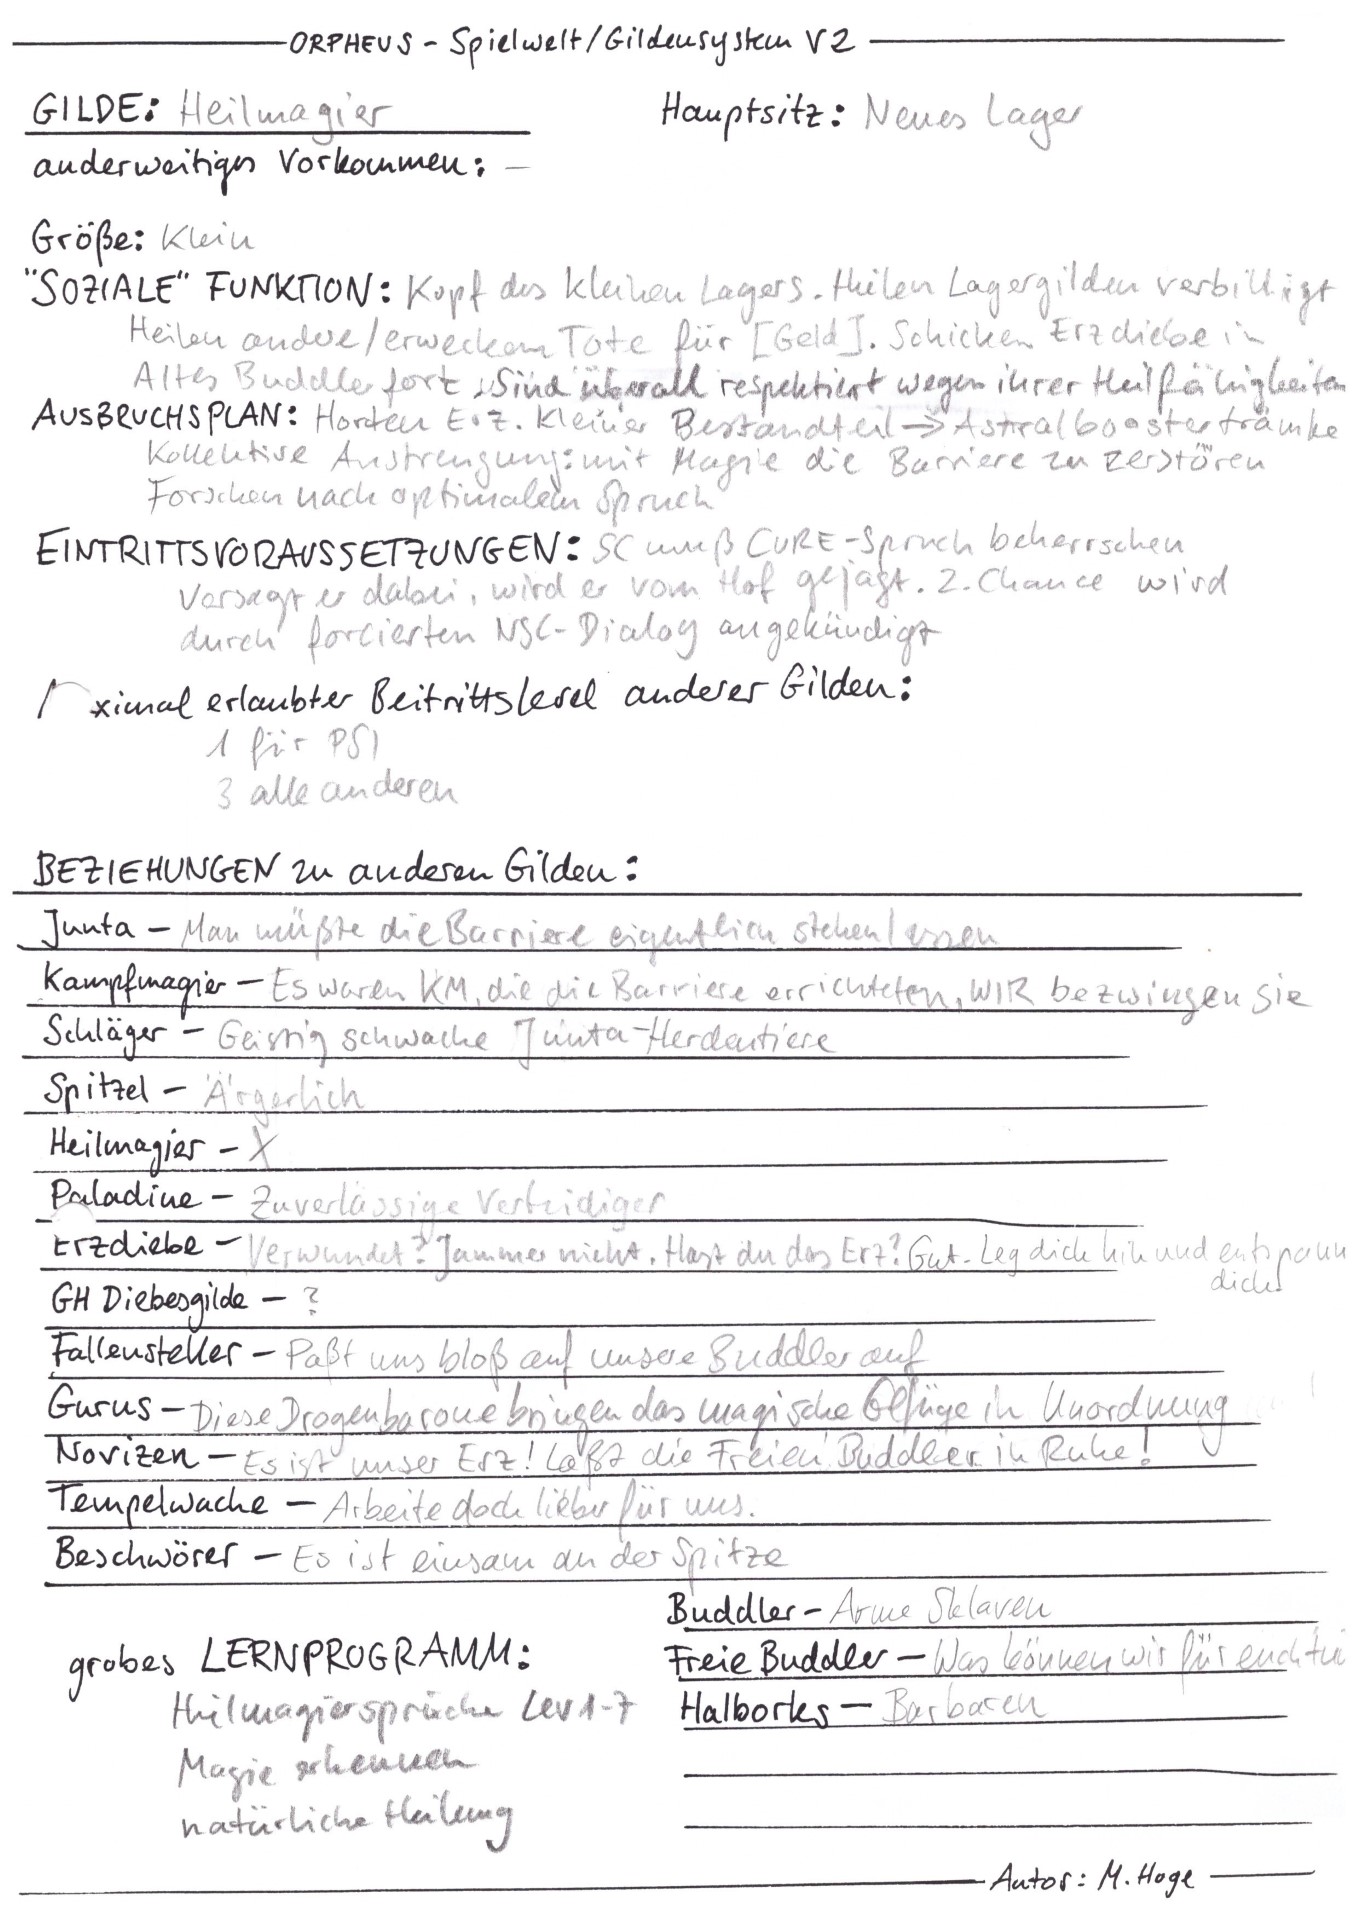 ORPHEUS - Spielwelt/Gildensystem V2
GILDE: Heilmagier
Hauptsitz: Neues Lager
anderweitiges Vorkommen: —
Größe: Klein
"SOZIALE" FUNKTION: Kopf des kleinen Lagers. Heilen Lagergilden verbilligt
Heilen andere/erwecken Tote für [Geld]. Schicken Erzdiebe in
Altes Buddler fort. Sind überall respektiert wegen ihrer Heilfähigkeiten
AUSBRUCHSPLAN: Horten Erz. Kleiner Bestandteil → Astralboostertränke
Kollektive Anstrengung: mit Magie die Barriere zu zerstören
Forschen nach optimalem Spruch
EINTRITTSVORAUSSETZUNGEN: SC muß CURE-Spruch beherrschen
Versagt er dabei, wird er vom Hof gejagt. 2. Chance wird
durch forcierten NSC-Dialog angekündigt
ximal erlaubter Beitrittslevel anderer Gilden:
1 für PSI
3 alle anderen
BEZIEHUNGEN zu anderen Gilden:
Junta — Man müßte die Barriere eigentlich stehen lassen
Kampfmagier — Es waren KM, die die Barriere errichteten, WIR bezwingen sie
Schläger — Geistig schwache Junta-Herdentiere
Spitzel — Ärgerlich
Heilmagier — X
Paladine — Zuverlässige Verteidiger
Erzdiebe — Verwundet? Jammer nicht. Hast du das Erz? Gut. Leg dich hin und entspann
dich
GH Diebesgilde — ?
Fallensteller — Paßt uns bloß auf unsere Buddler auf
Gurus — Diese Drogenbarone bringen das magische Gefüge in Unordnung
Novizen — Es ist unser Erz! Laßt die Freien Buddler in Ruhe!
Tempelwache — Arbeite doch lieber für uns.
Beschwörer — Es ist einsam an der Spitze
Buddler — Arme Sklaven
Freie Buddler — Was können wir für euch tu
Halborks — Barbaren
grobes LERNPROGRAMM:
Heilmagiersprüche Lev 1-7
Magie erkennen
natürliche Heilung
Autor: M. Hoge